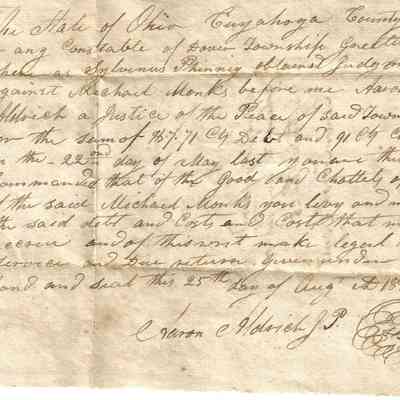 The State of Ohio Cuyahoga County
any Constable of Dover Township Greeting
Whereas Sylvenus Phinney obtained Judgm
against Mechael Monks before me Aaron
Aldrich a Justice of the Peace of said Town
for the sum of $7.71 Cts Debt and .91 Cts Co
on the 22nd day of May last you are the
Commanded that of the Good and Chattels of
the said Mechael Monks you levy and m
the said debt and Costs and Costs that m
accrue and of this writ make legal
service and Due return Given under
hand and seal this 25th day of Augt AD 18
Aaron Aldrich J P.